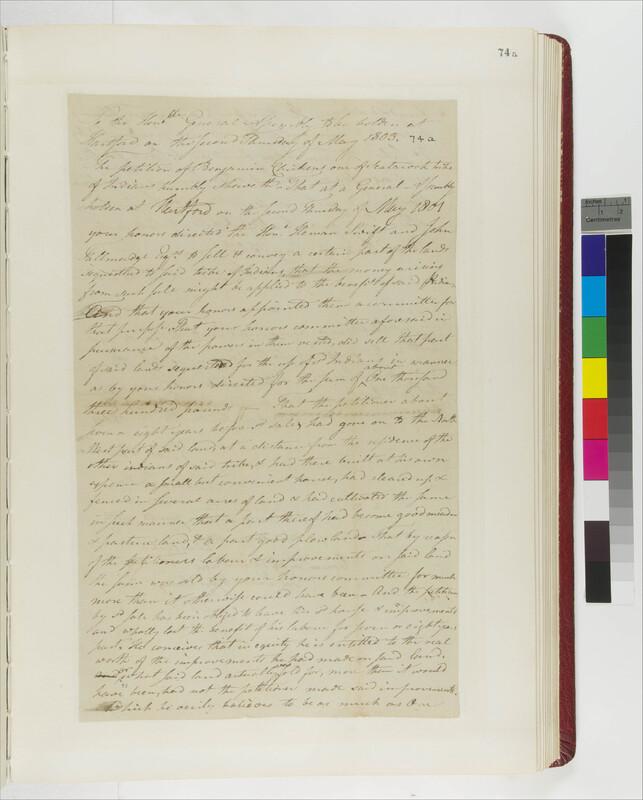 74a
To the Hon.ble General Assembly to be holden at
Hartford on the second Thursday of May 1803. 74a
The petition of Benjamin Chickens one of Scatacook tribe
of Indians humbly sheweth That at a General Assembly
holden at Hartford on the second Thursday of May 1801
your honors directed the Hon.l Heman Swift and John
Tallmadge Esq.rs to sell & convey a certain part of the lands
sequestred to said tribe of Indians, that the money arising
from such sale might be applied to the benefit of said Indians
And that your honors appointed them a committee for
that purpose That your honors committee aforesaid in
pursuance of the powers in them vested, did sell that part
of said lands sequestred for the use of sd Indians in manner
as by your honors directed for the sum of about One thousand
three hundred pounds — That the petitioner about
seven or eight years before sd sale, had gone on to the North
West part of said land, at a distance from the residence of the
other indians of said tribe, & had there built at his own
expence a small but convenient house, had cleared up &
fenced in several acres of land & had cultivated the same
in such manner that a part thereof had become good meadow
& pasture land, & a part good plow land That by reason
of the petitioners labour & improvements on said land
the same was sold by your honors committee for much
more than it otherwise could have been And the petitioner
by sd sale has been obliged to leave his sd house & improvements
and wholly lost the benefit of his labour for seven or eight years
past He conceives that in equity he is entitled to the real
worth of the improvements he had made on said land.
or what said land actually sold for, more than it would
have been, had not the petitioner made said improvements
Which he verily believes to be as much as One
Inches
1
2
Centimetres